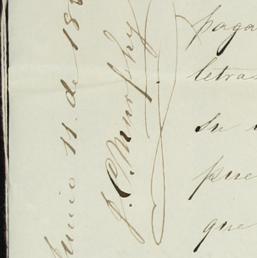 Junio 11. de 18
J. C. Murphy
paga
letras
su
pue
que